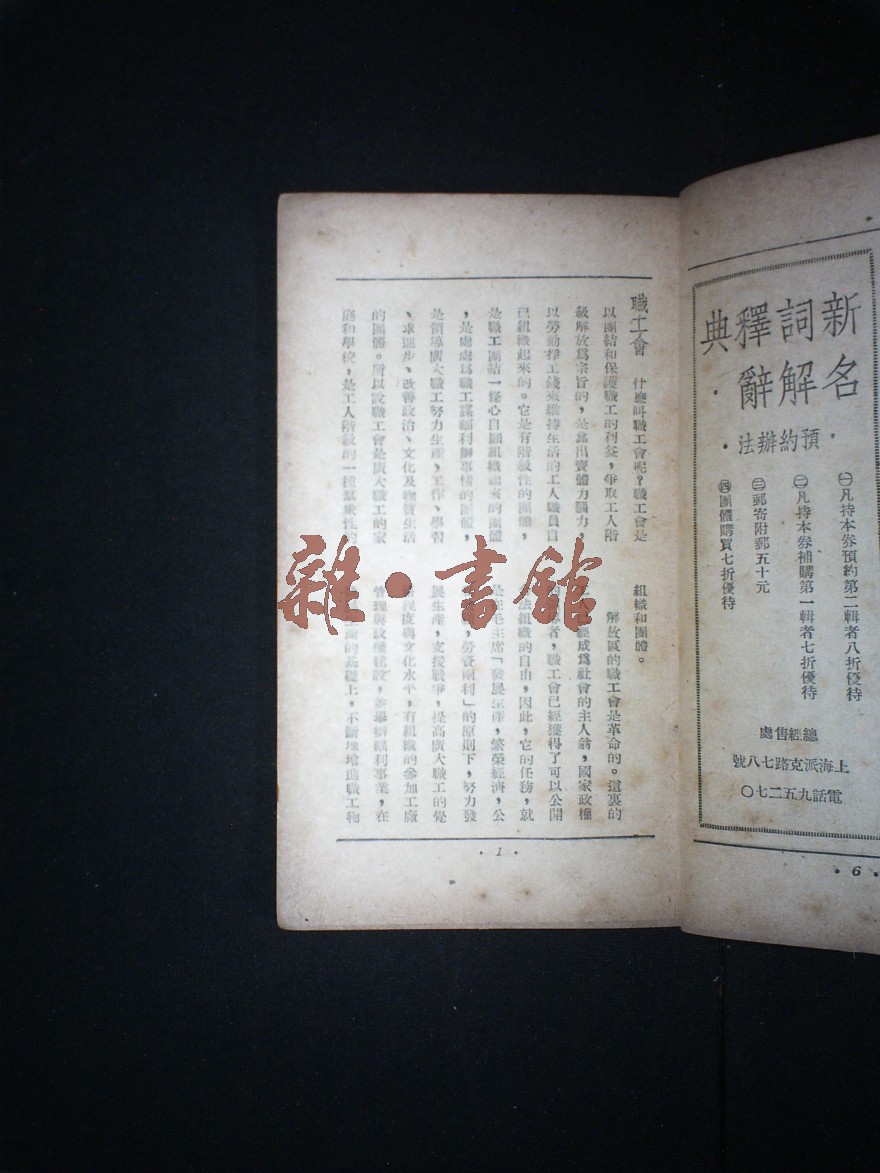 新名
詞解
釋辭
典
・預約辦法・
㊀凡持本券預約第二輯者八折優待
㊁凡持本券補購第一輯者七折優待
㊂郵寄附郵五十元
㊃團體購買七折優待
總經售處
上海派克路七八號
電話九五二七〇
・6・
職工會 什麽叫職工會呢?職工會是
以團結和保護職工的利益,爭取工人階
級解放爲宗旨的,是爲出賣體力腦力,
以勞動掙工錢來維持生活的工人職員自
己組織起來的。它是有階級性的團體,
是職工團結一條心自願組織起來的團體
,是處處爲職工謀福利辦事情的團體,
是領導廣大職工努力生產、工作、學習
、求進步、改善政治、文化及物質生活
的團體。所以說職工會是廣大職工的家
庭和學校,是工人階級的一種羣衆性的
組織和團體。
解放區的職工會是革命的。這裏的
已經成爲社會的主人翁,國家政權
者,職工會已經獲得了可以公開
合法組織的自由,因此,它的任務,就
是在毛主席「發展生產,繁榮經濟,公
,勞資兩利」的原則下,努力發
展生產,支援戰爭,提高廣大職工的覺
程度與文化水平,有組織的參加工廠
管理與政權建設,並舉辦福利事業,在
的基礎上,不斷地增進職工物
・1・
雜・書館